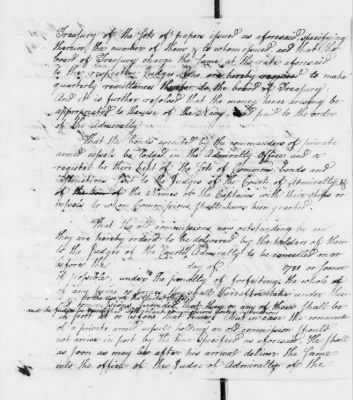 Treasury of the sets of papers issued as aforesaid, specifying
therein the number of them & to whom issued, and that the
board of Treasury charge the same at the rate aforesaid
to the respective Judges who are hereby required to make
quarterly remittances to the board of Treasury:
And it is further resolved that the money hence arising be
appropriated to the use of the Navy, and paid to the order
of the Admiralty.
That the bonds executed by the commanders of private
armed vessels be lodged in the Admiralty Office and a
register be there kept of the of Commissions, bonds and
by the Judges of the Courts of Admiralty &
of the names of the Captains with their ships or
vessels to whom Commissions shall have been granted.
That the old commissions now outstanding be and
they are hereby ordered to be delivered by the holders of them
to the Judges of the Court of Admiralty to be cancelled on or
before the day of 1781 or sooner
if possible, under the penalty of forfeiting the whole of
any prize or prizes they shall hereafter take under
and
in port at or before that time; But in case the commander
of a private armed vessel holding an old commission should
not arrive in port by the time specified as aforesaid, He shall
as soon as may be after his arrival deliver the same
into the office of the Judge of Admiralty of the